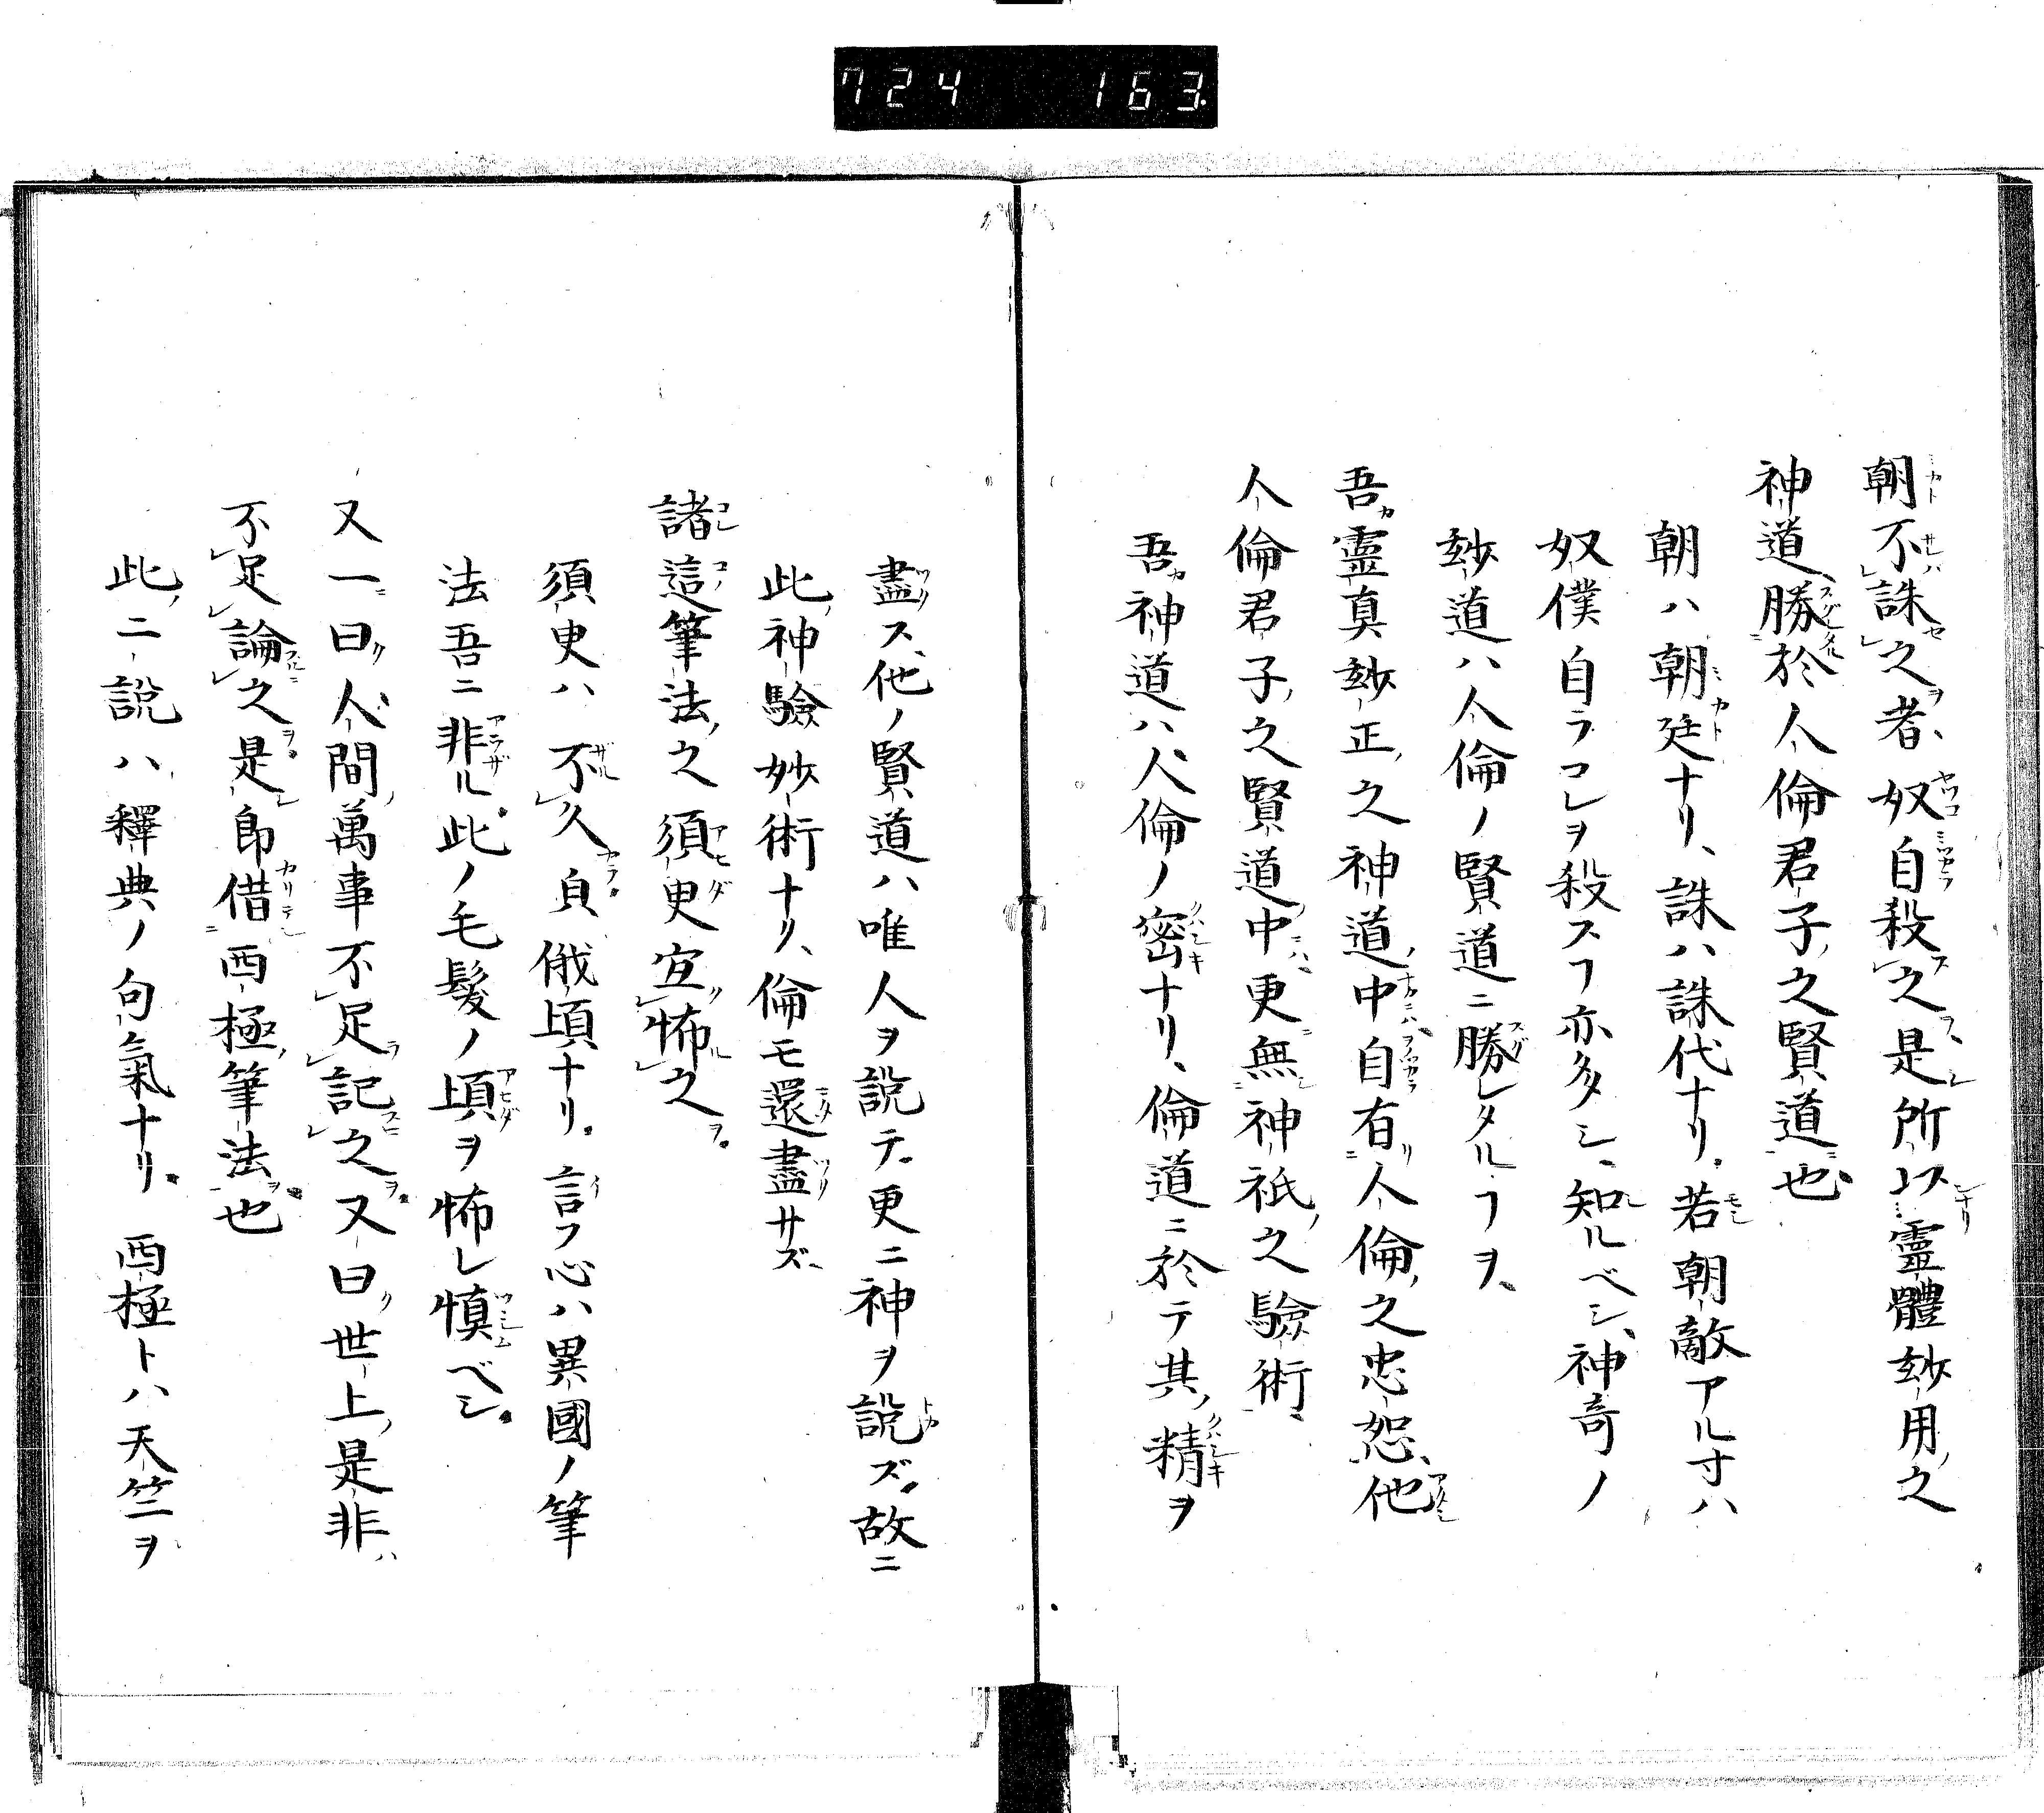 724 163.
朝不誅之者、奴自殺之是所以靈體玅用之
神道勝於人倫君子之賢道也
朝ハ朝廷ナリ、誅ハ誅代ナリ。若朝敵アルヰハ
奴僕自ラコレヲ殺スヿ亦多シ、知ルベシ、神奇ノ
玅道ハ人倫ノ賢道ニ勝レタルヿヲ、
吾靈真玅正之神道中自有人倫之忠恕、他
人倫君子之賢道中更無神祇之驗術、
吾神道ハ人倫ノ密ナリ、倫道ニ於テ其精ヲ
盡ス、他ノ賢道ハ唯人ヲ說テ更ニ神ヲ說ズ。故ニ
此神驗妙術ナリ、倫モ還盡サズ、
諸這筆法之須臾宜怖之
須臾ハ不久貞俄頃ナリ。言フ心ハ異國ノ筆
法吾ニ非ル。此ノ毛髮ノ頃ヲ怖レ慎ベシ。
又一曰人間萬事不足記之又曰世上是非
不足論之是即借西極筆法也
此二說ハ釋典ノ句氣ナリ。西極トハ天竺ヲ